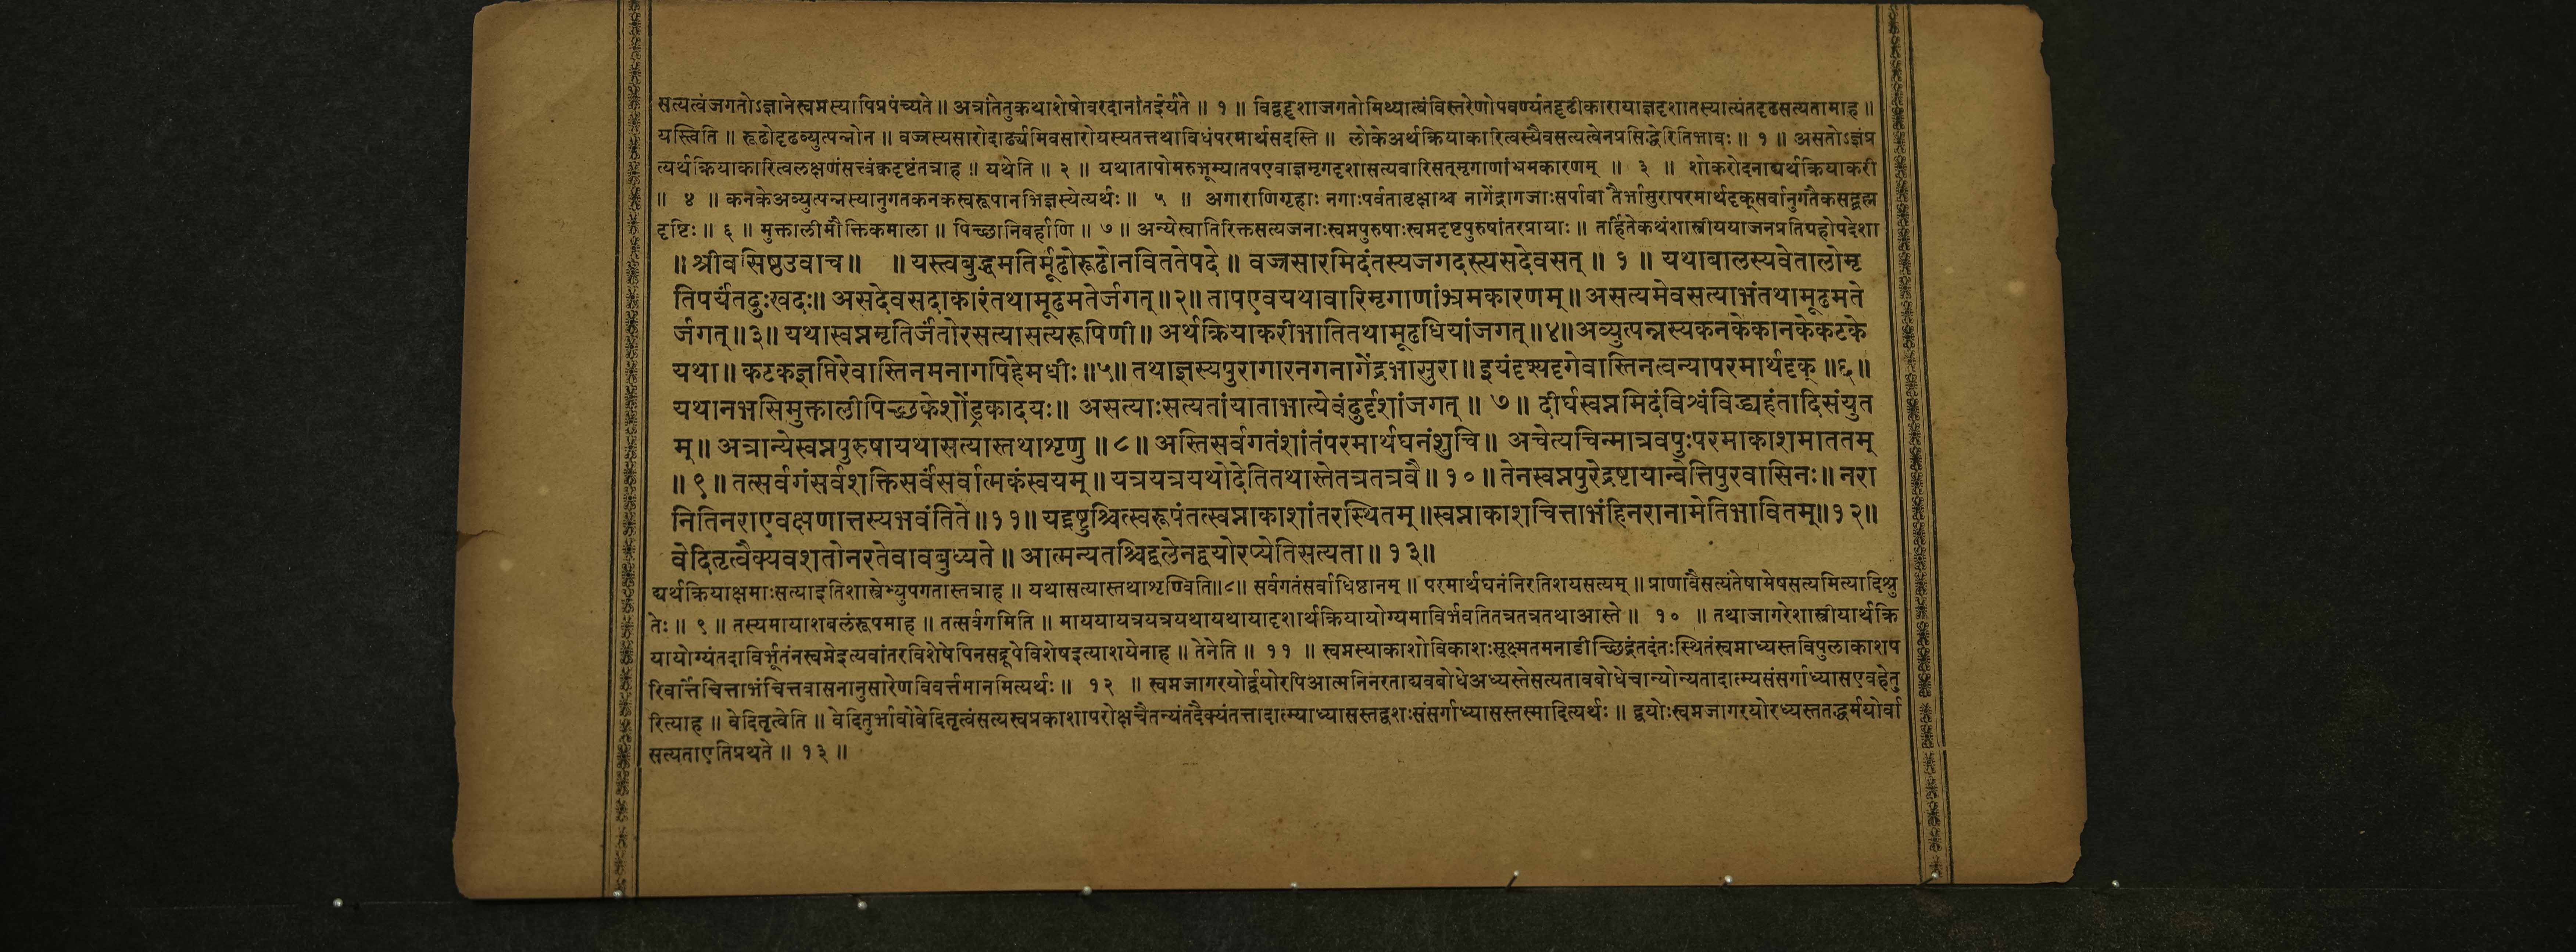 सत्यत्वंजगतोऽज्ञानेस्वप्नस्यापिप्रपंच्यते ॥ अत्रांतेतुकथाशेषोवरदानांतईर्यते ॥ १ ॥ विद्वद्दृशाजगतोमिथ्यात्वंविस्तरेणोपवर्ण्यतद्दृढीकारायाज्ञदृशातस्यात्यंतदृढसत्यतामाह ॥
यस्त्विति ॥ रूढोदृढव्युत्पन्नोन ॥ वज्रस्यसारोदार्ढ्यमिवसारोयस्यतत्तथाविधंपरमार्थसदस्ति ॥ लोकेअर्थक्रियाकारित्वस्यैवसत्यत्वेनप्रसिद्धेरितिभावः ॥ १ ॥ असतोऽज्ञंप्र
त्यर्थक्रियाकारित्वलक्षणंसत्त्वंक्वदृष्टंतत्राह ॥ यथेति ॥ २ ॥ यथातापोमरुभूम्यातपएवाज्ञमृगदृशासत्यवारिसत्मृगाणांभ्रमकारणम् ॥ ३ ॥ शोकरोदनाद्यर्थक्रियाकरी
॥ ४ ॥ कनकेअव्युत्पन्नस्यानुगतकनकस्वरूपानभिज्ञस्येत्यर्थः ॥ ५ ॥ अगाराणिगृहाः नगाःपर्वतावृक्षाश्च नागेंद्रागजाःसर्पावा तैर्भासुरापरमार्थदृक्सर्वानुगतैकसद्ब्रह्म
दृष्टिः ॥ ६ ॥ मुक्तालीमौक्तिकमाला ॥ पिच्छानिबर्हाणि ॥ ७ ॥ अन्येस्वातिरिक्तसत्यजनाःस्वप्नपुरुषाःस्वप्नदृष्टपुरुषांतरप्रायाः ॥ तर्हितेकथंशास्त्रीययाजनप्रतिग्रहोपदेशा
॥ श्रीवसिष्ठउवाच ॥ ॥ यस्त्वबुद्धमतिर्मूढोरूढोनविततेपदे ॥ वज्रसारमिदंतस्यजगदस्त्यसदेवसत् ॥ १ ॥ यथाबालस्यवेतालोमृ
तिपर्यंतदुःखदः ॥ असदेवसदाकारंतथामूढमतेर्जगत् ॥ २ ॥ तापएवयथावारिमृगाणांभ्रमकारणम् ॥ असत्यमेवसत्याभंतथामूढमते
र्जगत् ॥ ३ ॥ यथास्वप्नमृतिर्जंतोरसत्यासत्यरूपिणी ॥ अर्थक्रियाकरीभातितथामूढधियांजगत् ॥ ४ ॥ अव्युत्पन्नस्यकनकेकानकेकटके
यथा ॥ कटकज्ञप्तिरेवास्तिनमनागपिहेमधीः ॥ ५ ॥ तथाज्ञस्यपुरागारनगनागेंद्रभासुरा ॥ इयंदृश्यदृगेवास्तिनत्वन्यापरमार्थदृक् ॥ ६ ॥
यथानभसिमुक्तालीपिच्छकेशोंड्रकादयः ॥ असत्याःसत्यतांयाताभात्येवंदुर्दृशांजगत् ॥ ७ ॥ दीर्घस्वप्नमिदंविश्वंविद्ध्यहंतादिसंयुत
म् ॥ अत्रान्येस्वप्नपुरुषायथासत्यास्तथाशृणु ॥ ८ ॥ अस्तिसर्वगतंशांतंपरमार्थघनंशुचि ॥ अचेत्यचिन्मात्रवपुःपरमाकाशमाततम्
॥ ९ ॥ तत्सर्वगंसर्वशक्तिसर्वंसर्वात्मकंस्वयम् ॥ यत्रयत्रयथोदेतितथास्तेतत्रतत्रवै ॥ १० ॥ तेनस्वप्नपुरेद्रष्टायान्वेत्तिपुरवासिनः ॥ नरा
नितिनराएवक्षणात्तस्यभवंतिते ॥ ११ ॥ यद्द्रष्टुश्चित्स्वरूपंतत्स्वप्नाकाशांतरस्थितम् ॥ स्वप्नाकाशचित्ताभंहिनरानामेतिभावितम् ॥ १२ ॥
वेदितृत्वैक्यवशतोनरतेवावबुध्यते ॥ आत्मन्यतश्चिद्बलेनद्वयोरप्येतिसत्यता ॥ १३ ॥
द्यर्थक्रियाक्षमाःसत्याइतिशास्त्रेभ्युपगतास्तत्राह ॥ यथासत्यास्तथाशृण्विति ॥ ८ ॥ सर्वगतंसर्वाधिष्ठानम् ॥ परमार्थघनंनिरतिशयसत्यम् ॥ प्राणावैसत्यंतेषामेषसत्यमित्यादिश्रु
तेः ॥ ९ ॥ तस्यमायाशबलंरूपमाह ॥ तत्सर्वगमिति ॥ माययायत्रयत्रयथायथायादृशार्थक्रियायोग्यमाविर्भवतितत्रतत्रतथाआस्ते ॥ १० ॥ तथाजागरेशास्त्रीयार्थक्रि
यायोग्यंतदाविर्भूतंनस्वप्नेइत्यवांतरविशेषेपिनसद्रूपेविशेषइत्याशयेनाह ॥ तेनेति ॥ ११ ॥ स्वप्नस्याकाशोविकाशःसूक्ष्मतमनाडीच्छिद्रंतदंतःस्थितंस्वप्नाध्यस्तविपुलाकाशप
रिवर्त्तिचित्ताभंचित्तवासनानुसारेणविवर्त्तमानमित्यर्थः ॥ १२ ॥ स्वप्नजागरयोर्द्वयोरपिआत्मनिनरताद्यवबोधेअध्यस्तेसत्यतावबोधेचान्योन्यतादात्म्यसंसर्गाध्यासएवहेतु
रित्याह ॥ वेदितृत्वेति ॥ वेदितुर्भावोवेदितृत्वंसत्यस्वप्रकाशापरोक्षचैतन्यंतदैक्यंतत्तादात्म्याध्यासस्तद्वशःसंसर्गाध्यासस्तस्मादित्यर्थः ॥ द्वयोःस्वप्नजागरयोरध्यस्ततद्धर्मयोर्वा
सत्यताएतिप्रथते ॥ १३ ॥